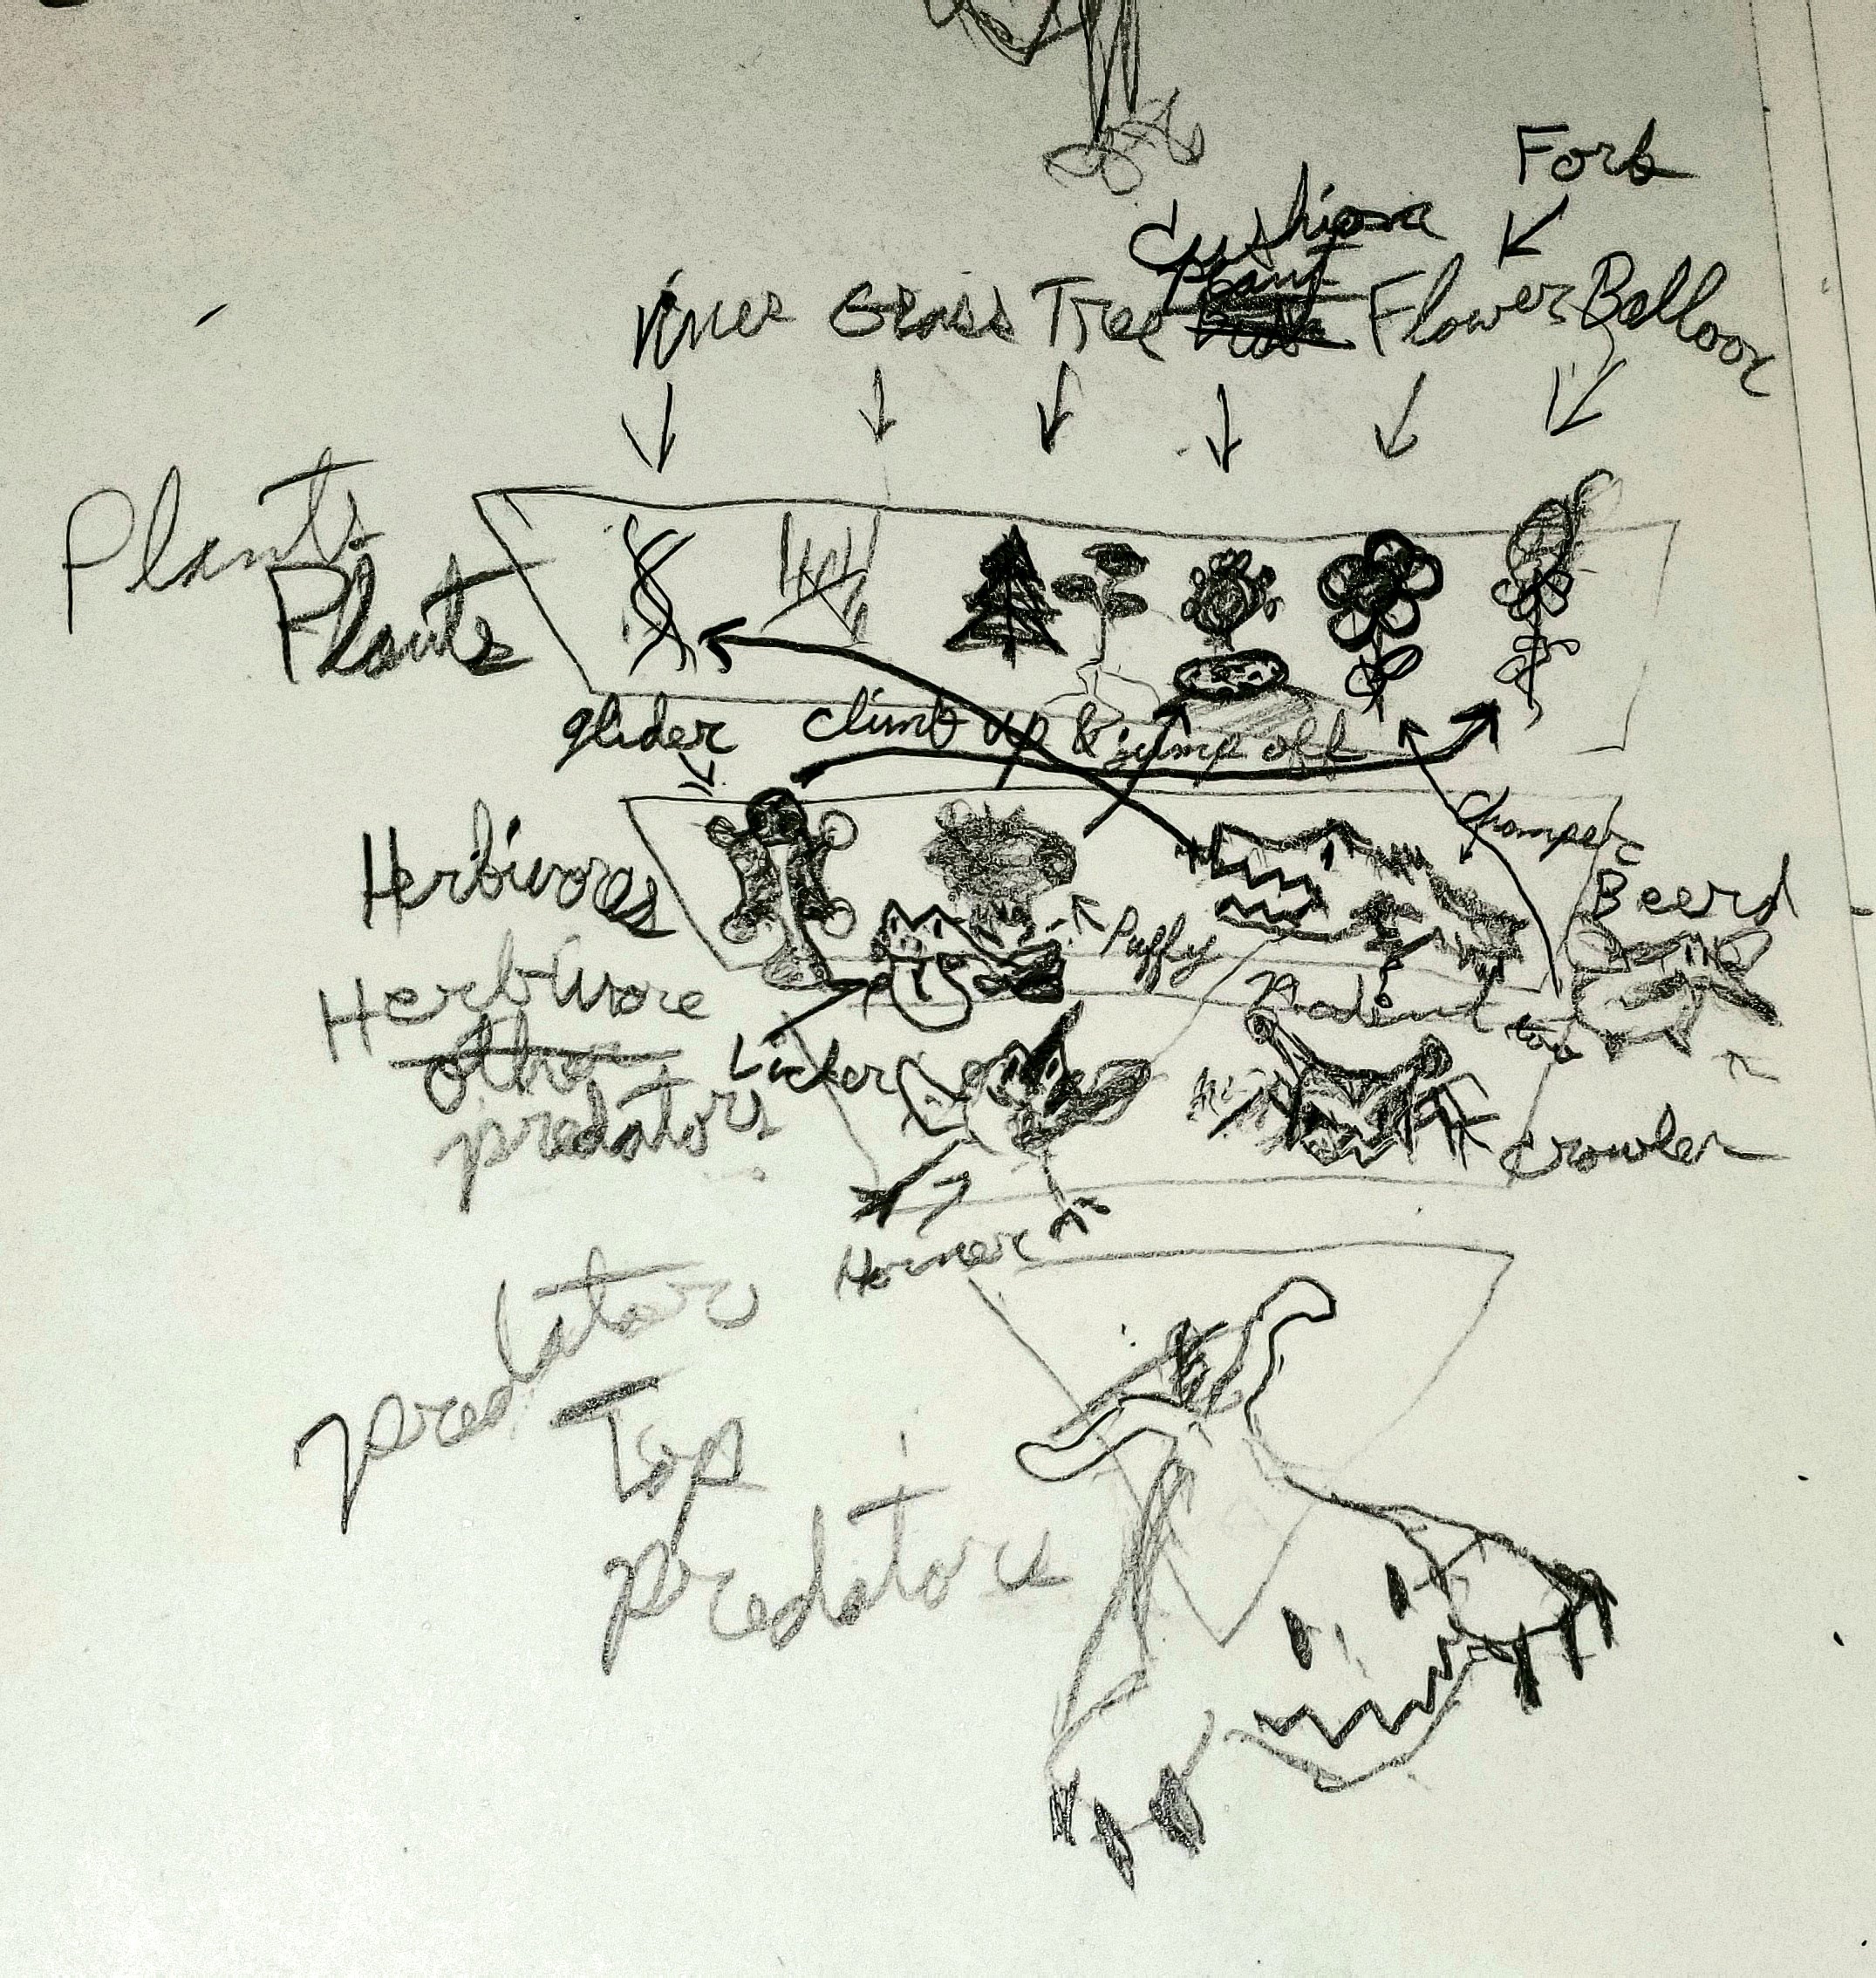 Forb
Cushion
plant
Vines Grass Tree Flower Balloon
Plants
Plants
glider climb up & jump off
Chomper
Herbivores
Beerd
Puffy
Herbivore
Rodent too
other
Licker
predators
Crowler
Horner
predator
Top
predators